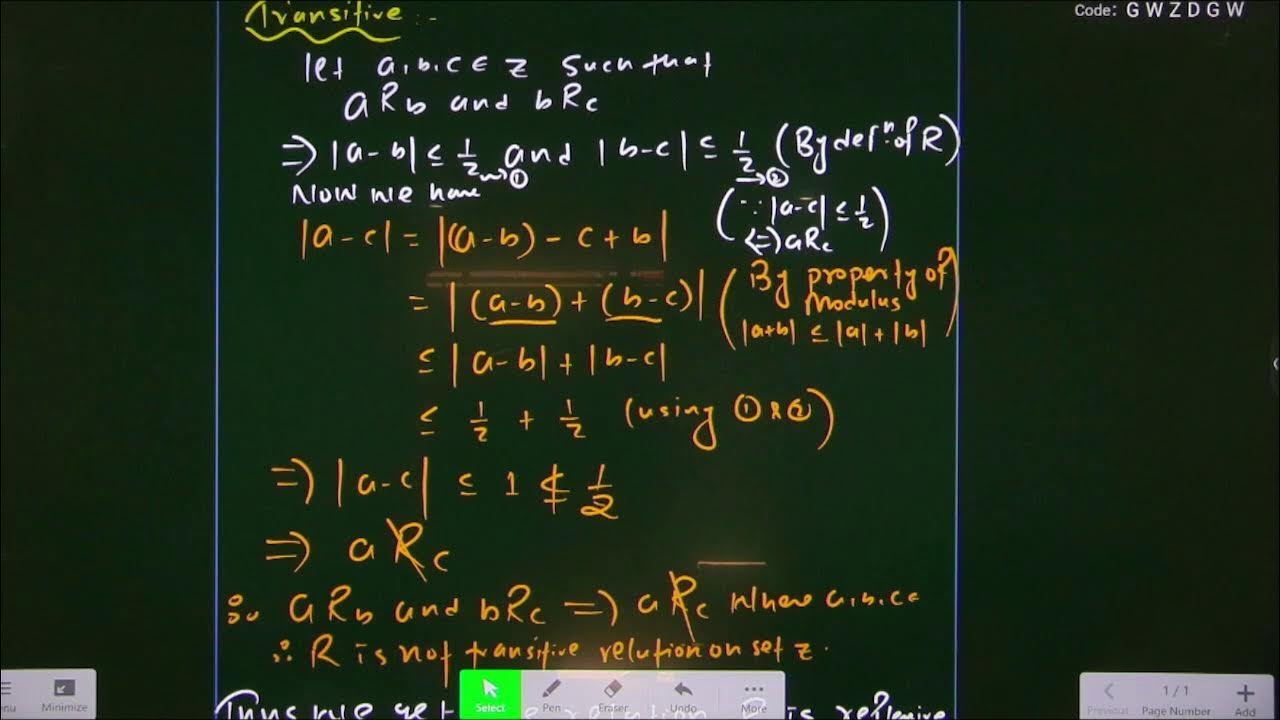 Code: G W Z D G W
Transitive :-
let a,b,c ∈ z such that
aRb and bRc
=> |a-b| ≤ 1/2 → ① and |b-c| ≤ 1/2 → ② (By defⁿ. of R)
Now we have
(∵ |a-c| ≤ 1/2 <=> aRc)
|a-c| = |(a-b) - c + b|
= |(a-b) + (b-c)| (By property of Modulus |a+b| ≤ |a| + |b|)
≤ |a-b| + |b-c|
≤ 1/2 + 1/2 (using ① & ②)
=> |a-c| ≤ 1 ≰ 1/2
=> a R̸ c
∴ aRb and bRc => a R̸ c where a,b,c ∈
∴ R is not transitive relution on set z.
Thus we get is reflexive
Minimize
Select
Pen
Eraser
Undo
More
Previous
1 / 1
Page Number
Add